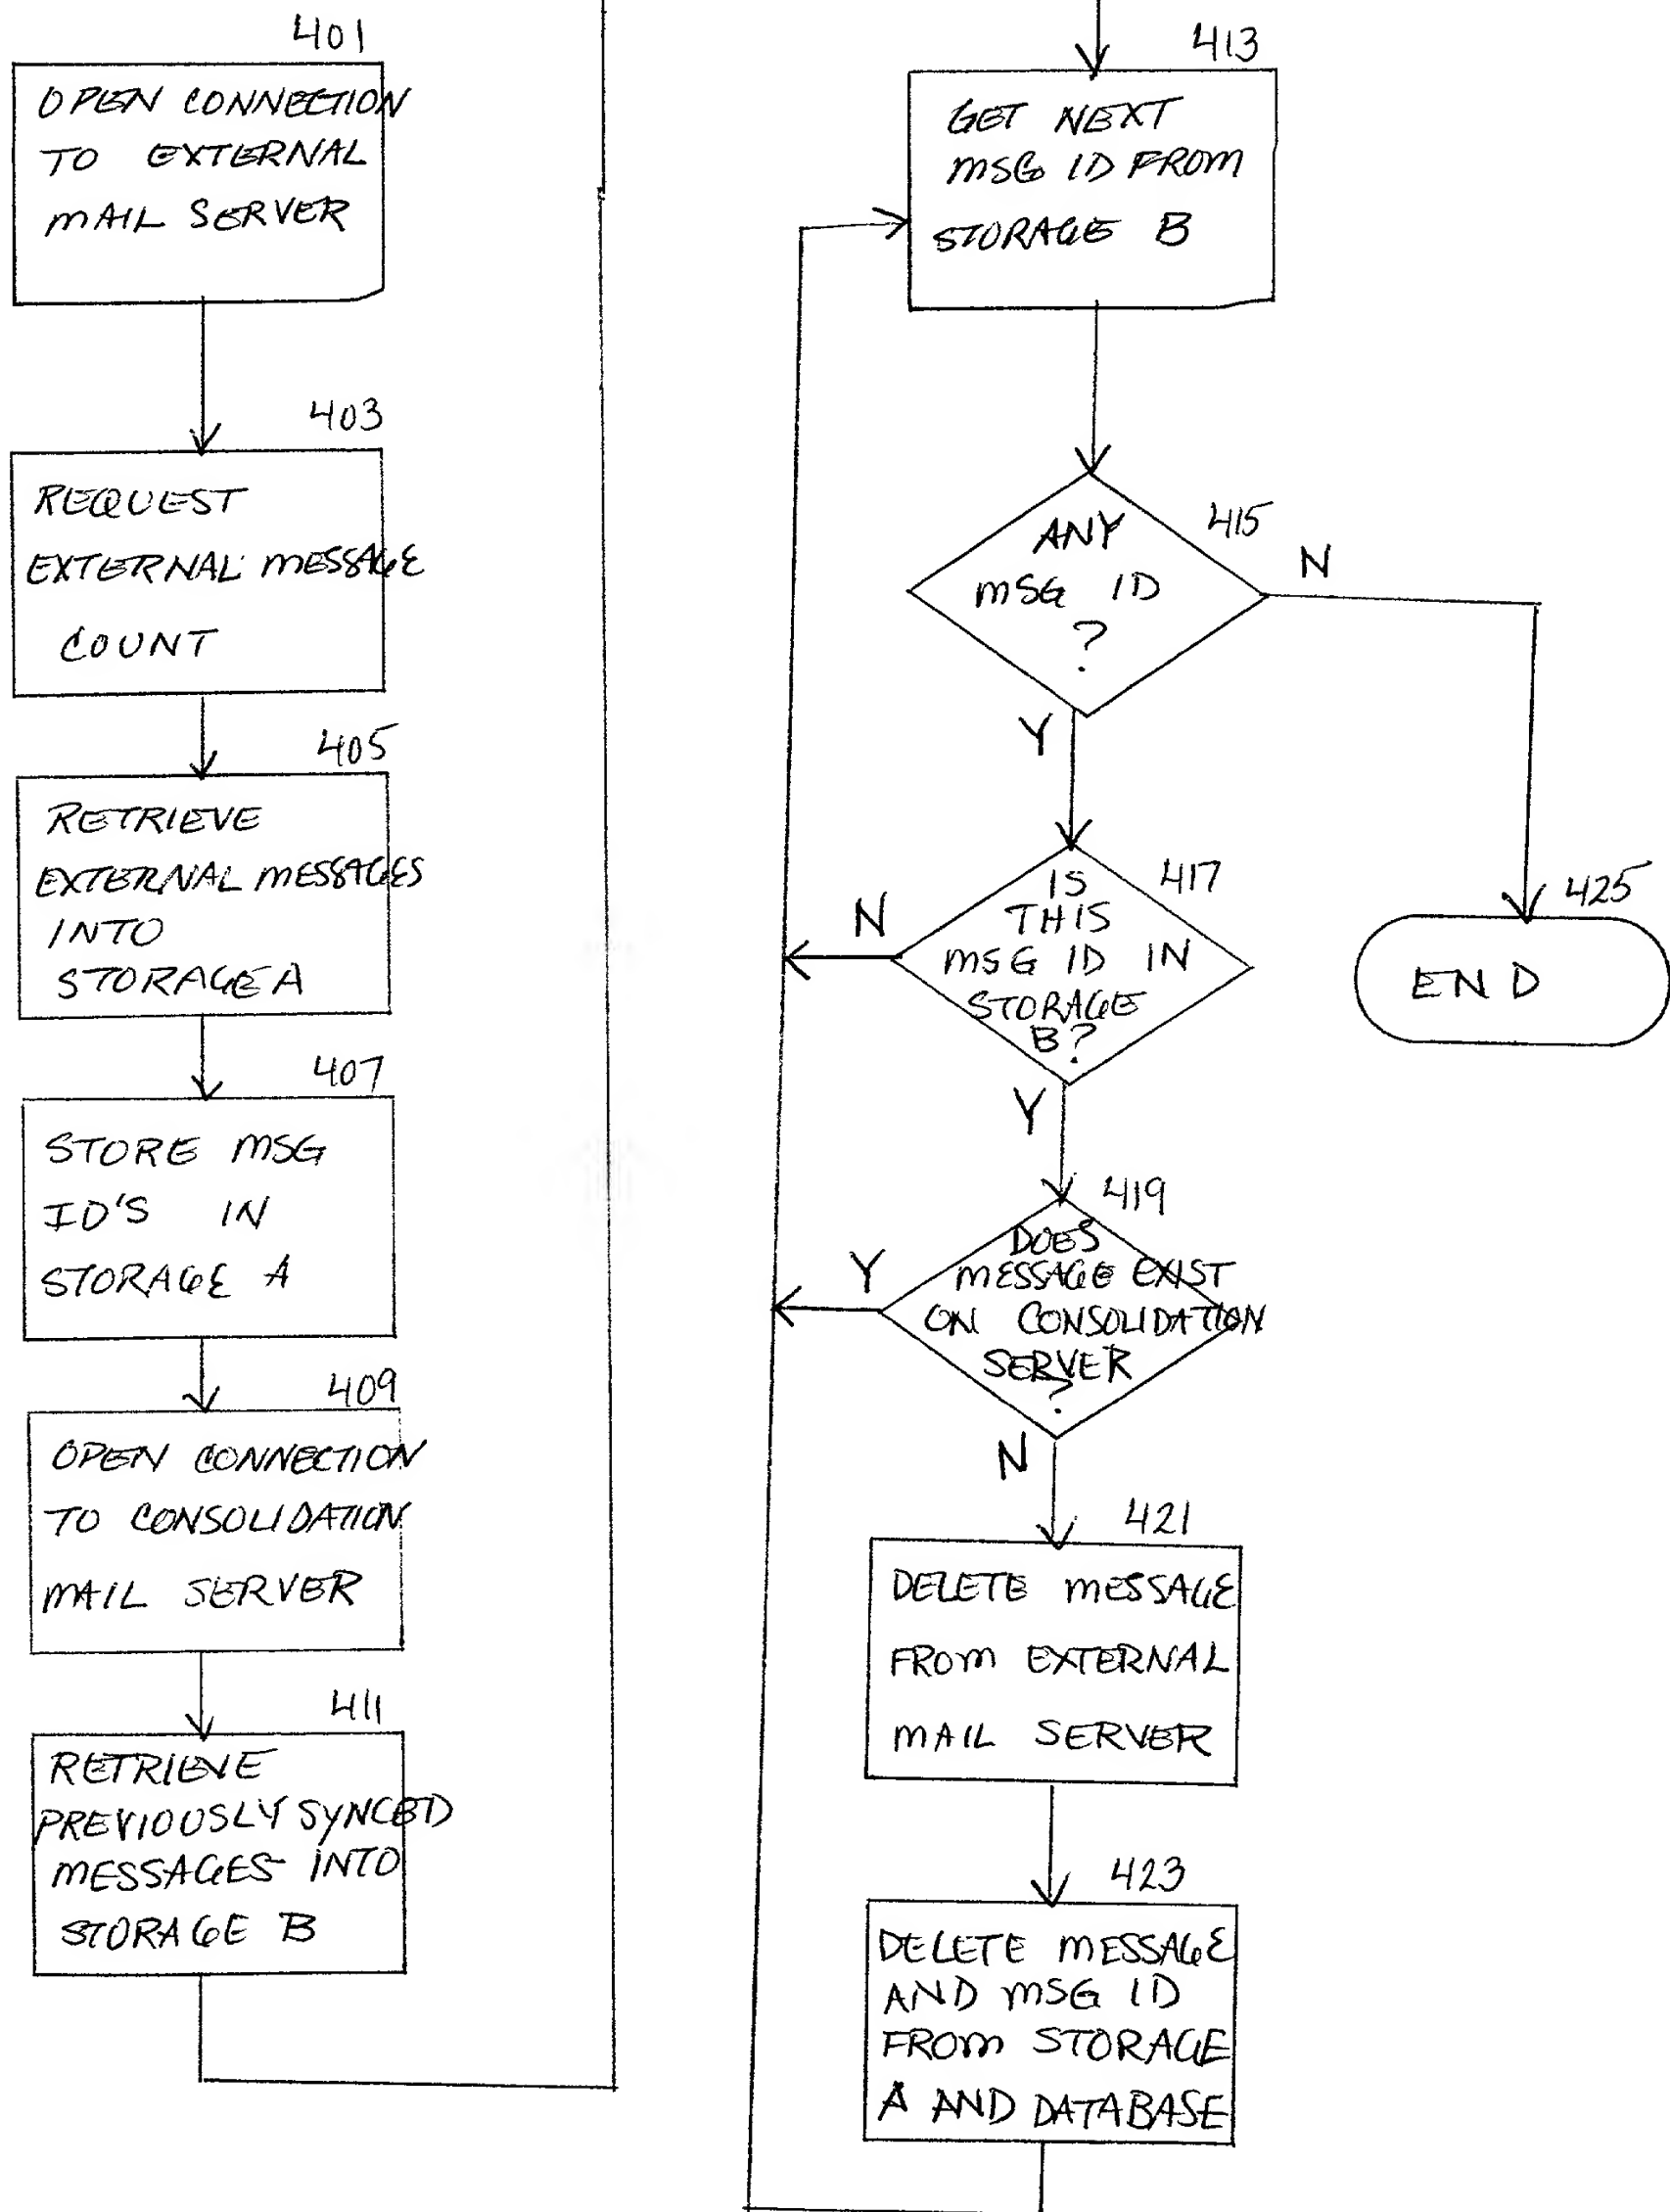 401
OPEN CONNECTION
TO EXTERNAL
MAIL SERVER
403
REQUEST
EXTERNAL MESSAGE
COUNT
405
RETRIEVE
EXTERNAL MESSAGES
INTO
STORAGE A
407
STORE MSG
ID'S IN
STORAGE A
409
OPEN CONNECTION
TO CONSOLIDATION
MAIL SERVER
411
RETRIEVE
PREVIOUSLY SYNCED
MESSAGES INTO
STORAGE B
413
GET NEXT
MSG ID FROM
STORAGE B
415
ANY
MSG ID
?
N
Y
417
IS
THIS
MSG ID IN
STORAGE
B?
N
Y
425
END
419
DOES
MESSAGE EXIST
ON CONSOLIDATION
SERVER
?
Y
N
421
DELETE MESSAGE
FROM EXTERNAL
MAIL SERVER
423
DELETE MESSAGE
AND MSG ID
FROM STORAGE
A AND DATABASE